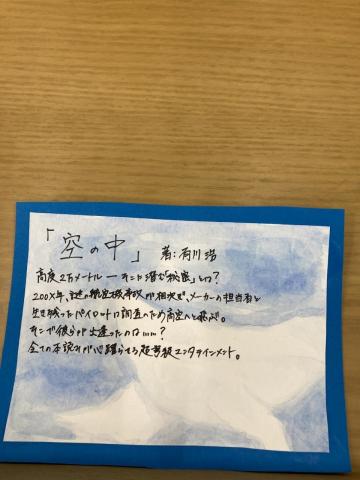 「空の中」 著:有川 浩
高度2万メートル ー そこに潜む「秘密」とは?
200X年、謎の航空機事故が相次ぎ、メーカーの担当者と
生き残ったパイロットは調査のため高空へと飛ぶ。
そこで彼らが出逢ったのは……?
全ての本読みが心躍らせる超弩級エンタテインメント。